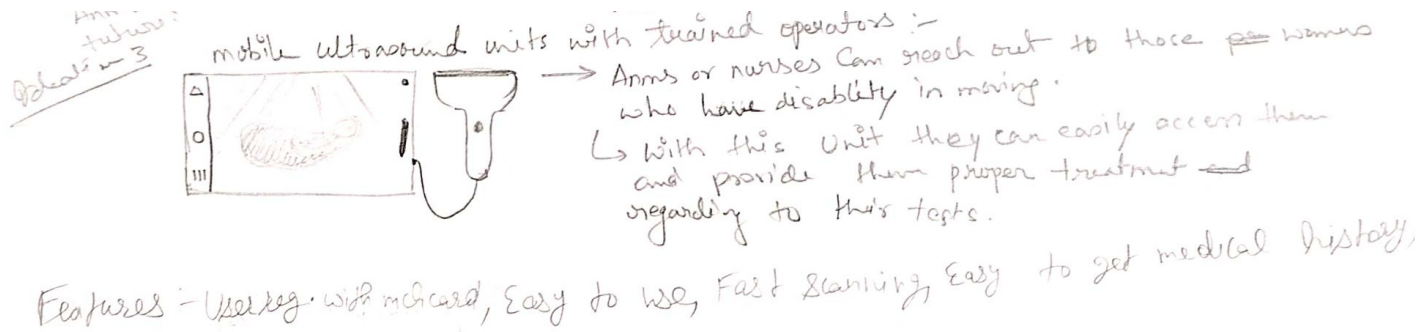 future:
Ideation 3
mobile ultrasound units with trained operators :-
→ Anms or nurses Can reach out to those womens
who have disablity in moving.
↳ with this Unit they can easily access them
and provide them proper treatment
regarding to their tests.
Features :- User reg. with mchcard, Easy to use, Fast Scanning, Easy to get medical history,